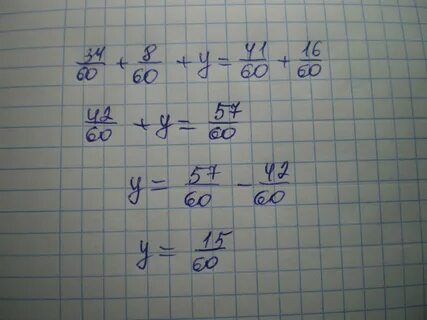 34/60 + 8/60 + y = 41/60 + 16/60
42/60 + y = 57/60
y = 57/60 - 42/60
y = 15/60